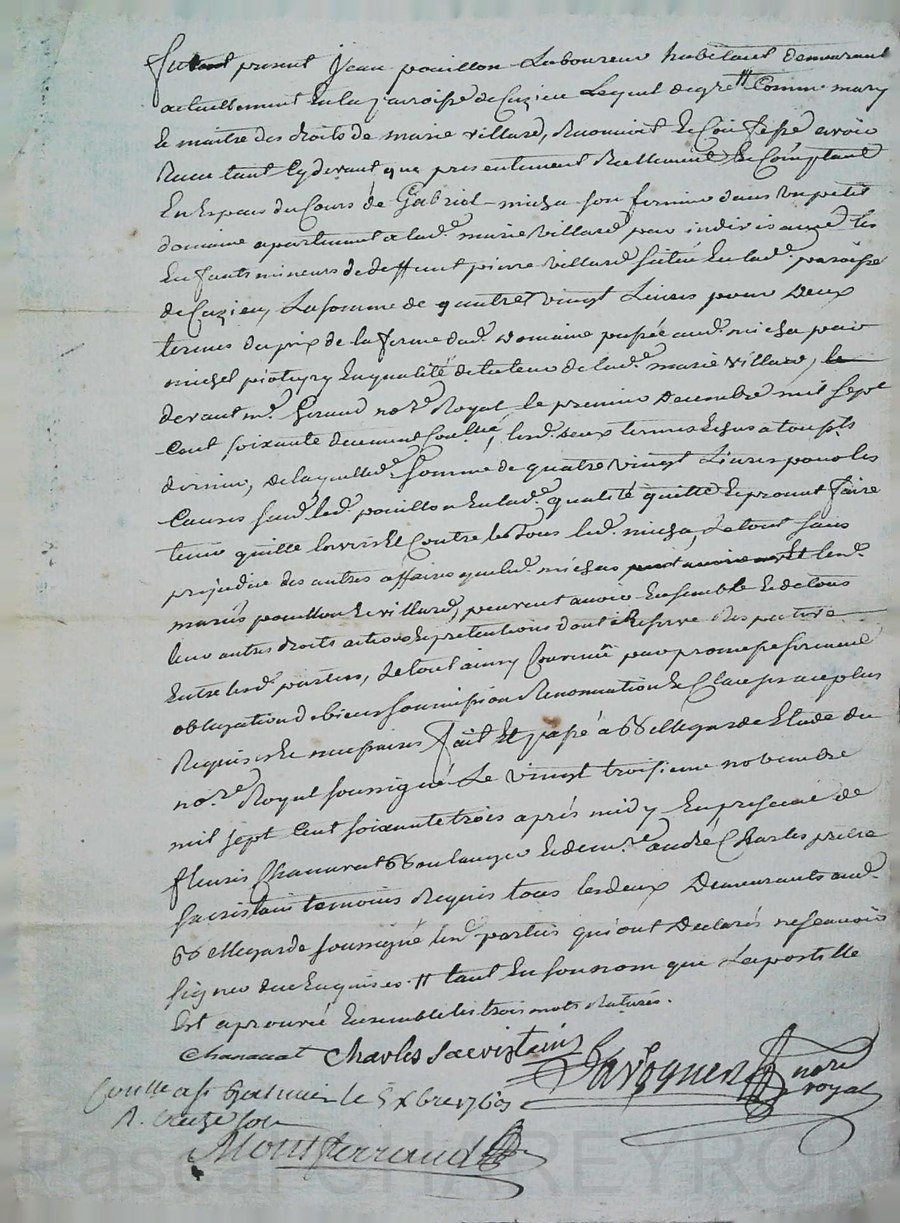 fut present Jean pouillon Laboureur habitant demeurant
actuellement En la paroisse de Cuzieu Lequel de gre # Comme mary
Et maitre des droits de marie villard, Reconnoit Et Confesse avoir
Receu tant Cy devant que presentement Reellement Et Comptant
En Espece du Cours de Gabriel micha son fermier dans un petit
domaine apartenant a lade. marie villard par indivis avec les
Enfants mineurs de deffunt pierre villard situé En lade. paroisse
de Cuzieu, La somme de quatre vingt Livres pour Deux
termes du prix de la ferme dud. Domaine passée aud. micha par
michel En qualité de tuteur de lade. marie villard, le
devant me. Giraud nore. Royal le premier Decembre mil sept
Cent soixante deuement Coullé, lesd. deux termes Echus a
dernier, de laquelle de. Somme de quatre vingt Livres pour les
Causes susd. led. pouillon En lade. qualité quitte Et promet faire
tenir quitte Envers Et Contre tous led. micha, Le tout sans
prejudice des autres affaires que led. micha Et lesd.
mariés pouillon Et villard, peuvent avoir Ensemble Et de tous
leur autres droits actions Et pretentions dont
Entre lesd. parties, Le tout ainsy Convenu par promesse serment
obligation de biens soumission Renonciation Et Clauses a ce plus
Requises Et necessaires fait Et passé a St Medgarde Etude du
nore. Royal soussigné Le vingt troisieme novembre
mil sept Cent soixante trois après midy En presence de
fleuris Chanavat Boulanger Et de me. andré Charles pretre
sacristain temoins Requis tous les deux Demeurants aud.
St Medgarde soussigné lesd. parties qui ont Declarés ne scavoir
signer de ce Enquises # tant En son nom que La postille
Est aprouvée Ensemble les trois mots Raturés.
Chanavat Charles sacristain
nore royal
le 5 xbre 1763
R. treize sols
Montferrand
Pascal CHAREYRON